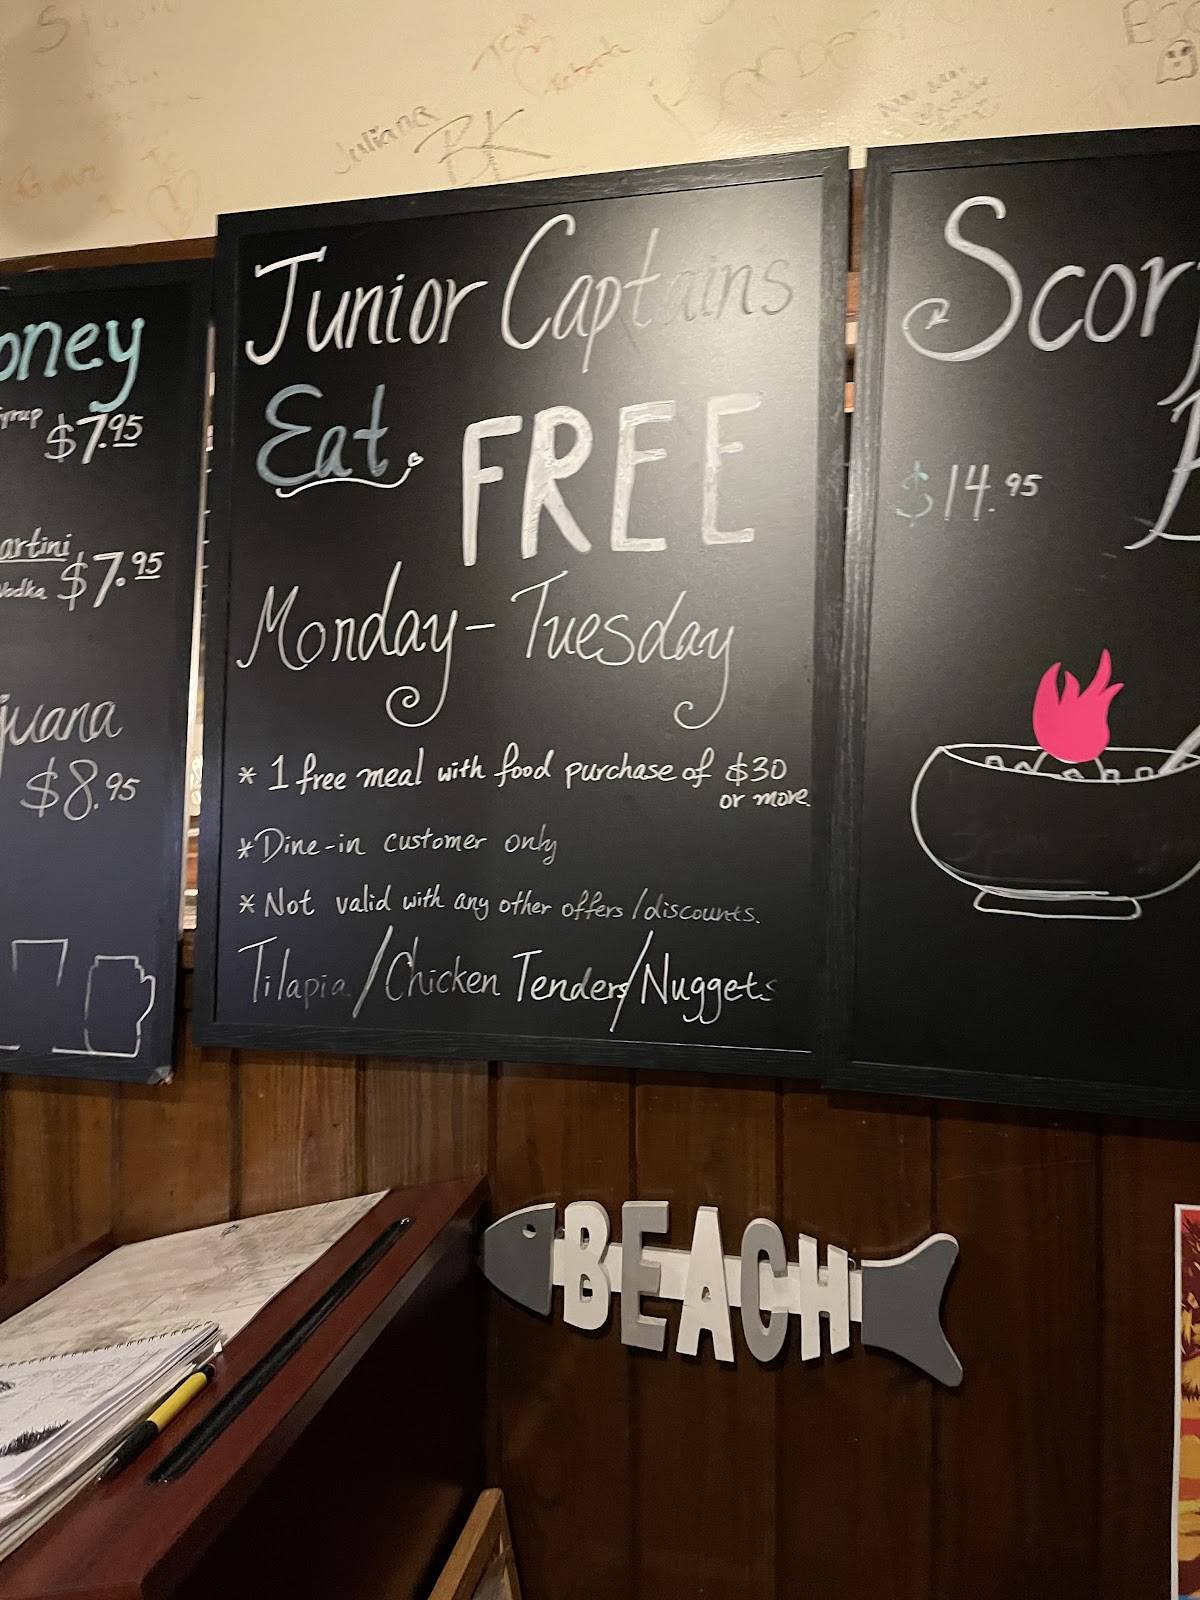 Juliana
BK
oney
$7.95
artini
Vodka $7.95
juana
$8.95
Junior Captains
Eat FREE
Monday - Tuesday
* 1 free meal with food purchase of $30
or more
* Dine-in customer only
* Not valid with any other offers/discounts.
Tilapia/Chicken Tenders/Nuggets
Scor
$14.95
BEACH